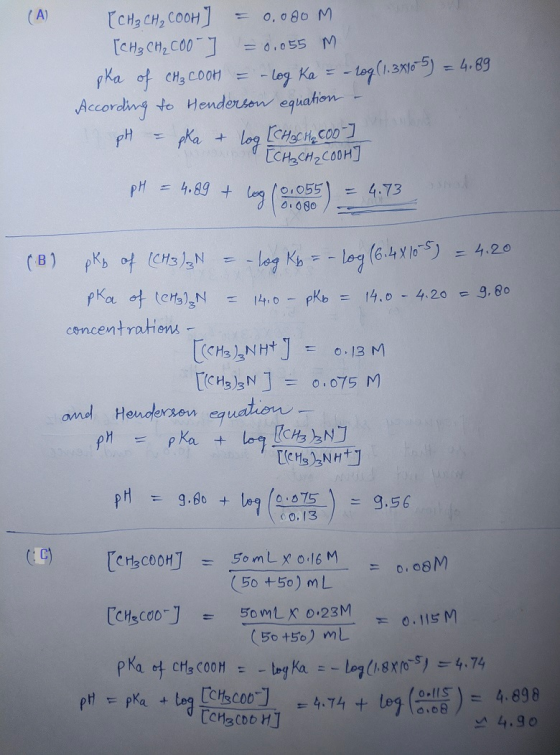 (A) [CH3CH2COOH] = 0.080 M
[CH3CH2COO⁻] = 0.055 M
pKa of CH3COOH = -log Ka = -log(1.3×10⁻⁵) = 4.89
According to Henderson equation -
pH = pKa + log [CH3CH2COO⁻] / [CH3CH2COOH]
pH = 4.89 + log (0.055 / 0.080) = 4.73
(B) pKb of (CH3)3N = -log Kb = -log(6.4×10⁻⁵) = 4.20
pKa of (CH3)3N = 14.0 - pKb = 14.0 - 4.20 = 9.80
concentrations -
[(CH3)3NH⁺] = 0.13 M
[(CH3)3N] = 0.075 M
and Henderson equation -
pH = pKa + log [(CH3)3N] / [(CH3)3NH⁺]
pH = 9.80 + log (0.075 / 0.13) = 9.56
(C) [CH3COOH] = 50mL × 0.16M / (50+50) mL = 0.08M
[CH3COO⁻] = 50mL × 0.23M / (50+50) mL = 0.115M
pKa of CH3COOH = -log Ka = -log(1.8×10⁻⁵) = 4.74
pH = pKa + log [CH3COO⁻] / [CH3COOH] = 4.74 + log (0.115 / 0.08) = 4.898
≃ 4.90